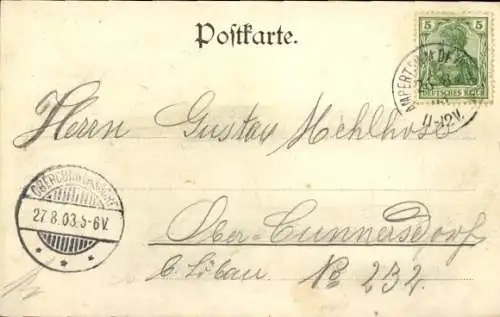 Postkarte.
5
DEUTSCHES REICH
11-12V.
Herrn Gustav Mehlhose
27.8.03.5-6V.
Ober-Cunnersdorf
b. Löbau No 232.